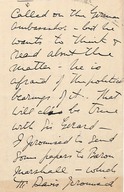 Called on the German
Ambassador - but he
wants to think &
read about the
matter. he is
afraid of the political
bearings of it. That
will also be true
with
Gerard -
I promised to send
some papers to Baron
Marshall - which
Mr Davis promised